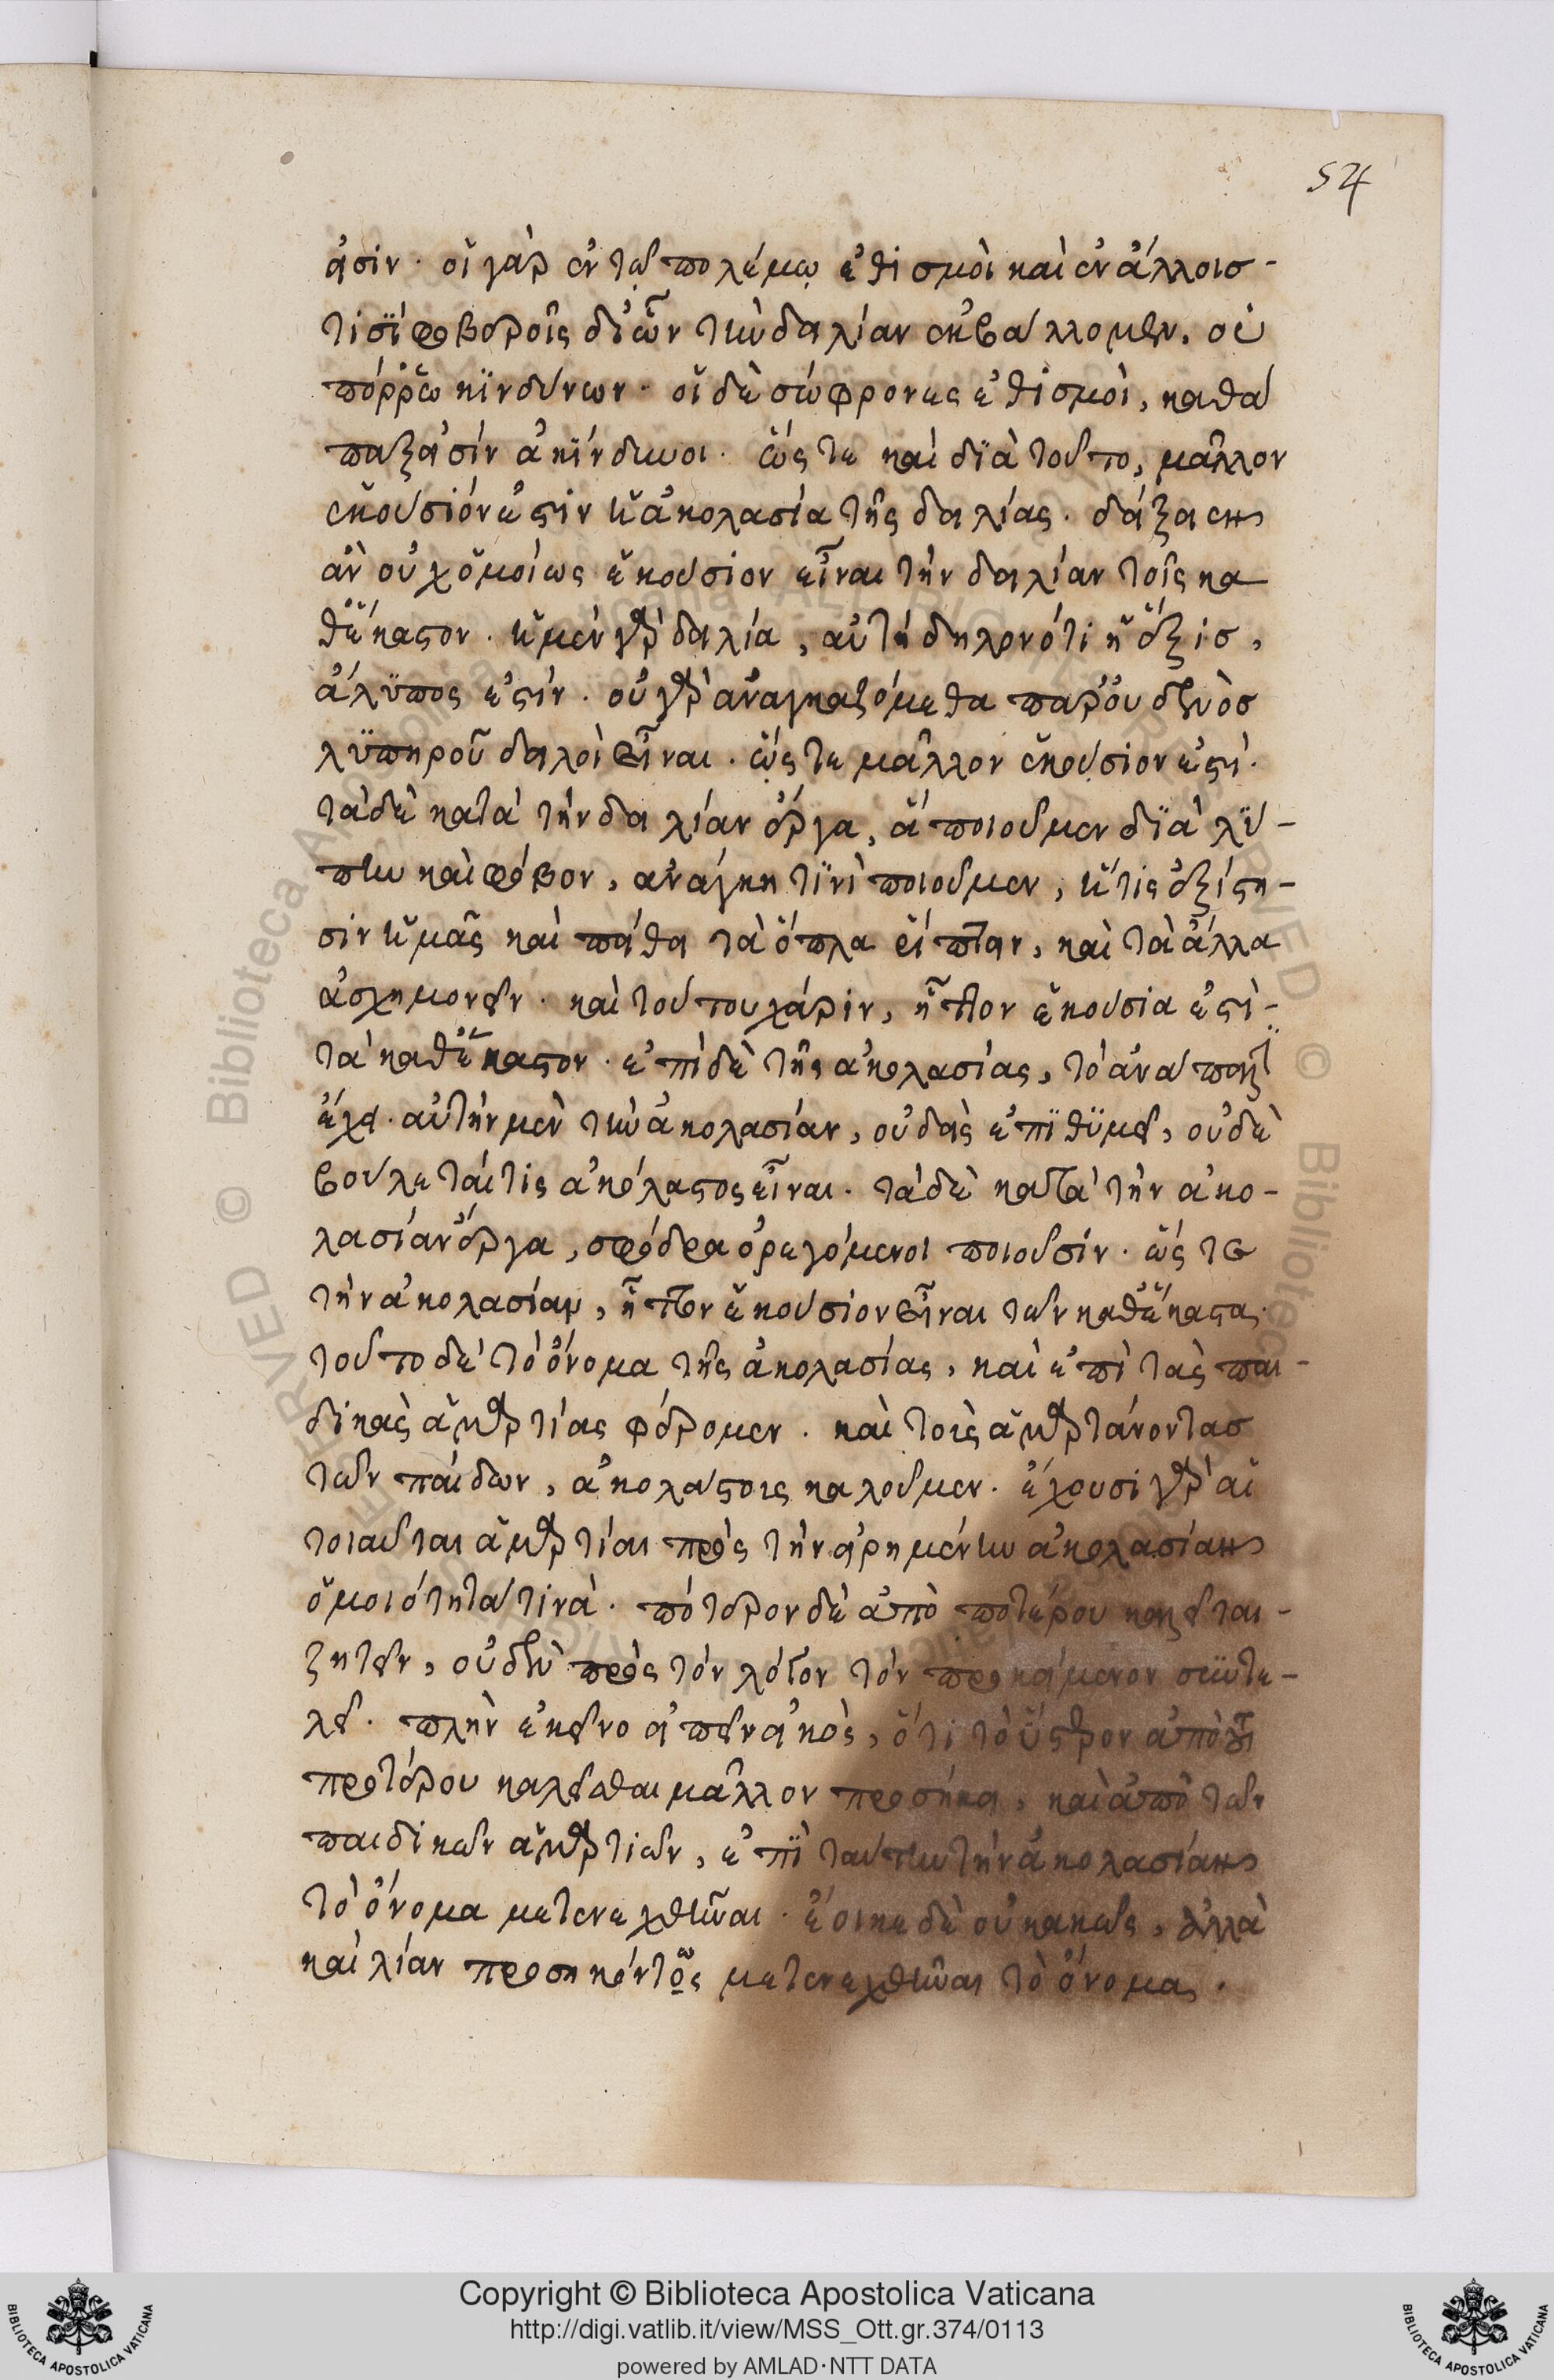 54
εἰσίν· οἱ γὰρ ἐν τῷ πολέμῳ ἐθισμοὶ καὶ ἐν ἄλλοισ-
τισὶ φοβεροῖς δι' ὧν τὴν δειλίαν ἐκβάλλομεν, οὐ
πόρρω κινδύνων· οἱ δὲ σώφρονες ἐθισμοὶ, καθά
παξ εἰσὶν ἀκίνδυνοι· ὥς τε καὶ διὰ τοῦτο, μᾶλλον
ἑκούσιόν ἐστιν ἡ ἀκολασία τῆς δειλίας· δόξειεν
ἂν οὐχ ὁμοίως ἑκούσιον εἶναι τὴν δειλίαν τοῖς κα
θέκαστον· ἡ μὲν γὰρ δειλία, αὐτὴ δηλονότι ἡ ἕξισ,
ἄλυπος ἐστίν· οὐ γὰρ ἀναγκαζόμεθα παρ' οὐδενὸσ
λυπηροῦ δειλοὶ εἶναι· ὥς τε μᾶλλον ἑκούσιον ἐστί·
τὰ δὲ κατὰ τὴν δειλίαν ἔργα, ἃ ποιοῦμεν διὰ λύ-
πην καὶ φόβον, ἀνάγκη τινὶ ποιοῦμεν, ἥτις ἐξίστη-
σιν ἡμᾶς καὶ πείθει τὰ ὅπλα ῥίπτειν, καὶ τὰ ἄλλα
ἀσχημονεῖν· καὶ τούτου χάριν, ἧττον ἑκούσια ἐστὶ-
τὰ καθέκαστον· ἐπὶ δὲ τῆς ἀκολασίας, τὸ ἀνάπαλιν
ἔχει· αὐτὴν μὲν τὴν ἀκολασίαν, οὐδεὶς ἐπιθυμεῖ, οὐδὲ
βούλεταί τις ἀκόλαστος εἶναι· τὰ δὲ κατὰ τὴν ἀκο-
λασίαν ἔργα, σφόδρα ὀρεγόμενοι ποιοῦσίν· ὥς τε
τὴν ἀκολασίαν, ἧττον ἑκούσιον εἶναι τῶν καθέκαστα·
τοῦτο δὲ τὸ ὄνομα τῆς ἀκολασίας, καὶ ἐπὶ τὰς παι-
δικὰς ἁμαρτίας φέρομεν· καὶ τοὺς ἁμαρτάνοντασ
τῶν παίδων, ἀκολάστους καλοῦμεν· ἔχουσι γὰρ αἱ
τοιαῦται ἁμαρτίαι πρὸς τὴν εἰρημένην ἀκολασίαν
ὁμοιότητά τινὰ· πότερον δὲ ἀπὸ ποτέρου καλεῖται-
ζητεῖν, οὐδὲν πρὸς τὸν λόγον τὸν προκείμενον συντε-
λεῖ· πλὴν ἐκεῖνο εἰπεῖν εἰκὸς, ὅτι τὸ ὕστερον ἀπὸ τοῦ
προτέρου καλεῖσθαι μᾶλλον προσήκει, καὶ ἀπὸ τῶν
παιδικῶν ἁμαρτιῶν, ἐπὶ ταύτην τὴν ἀκολασίαν
τὸ ὄνομα μετενεχθῆναι· ἔοικε δὲ οὐ κακῶς, ἀλλὰ
καὶ λίαν προσηκόντως μετενεχθῆναι τὸ ὄνομα·
Copyright © Biblioteca Apostolica Vaticana
http://digi.vatlib.it/view/MSS_Ott.gr.374/0113
powered by AMLAD·NTT DATA
BIBLIOTECA APOSTOLICA VATICANA
BIBLIOTECA APOSTOLICA VATICANA